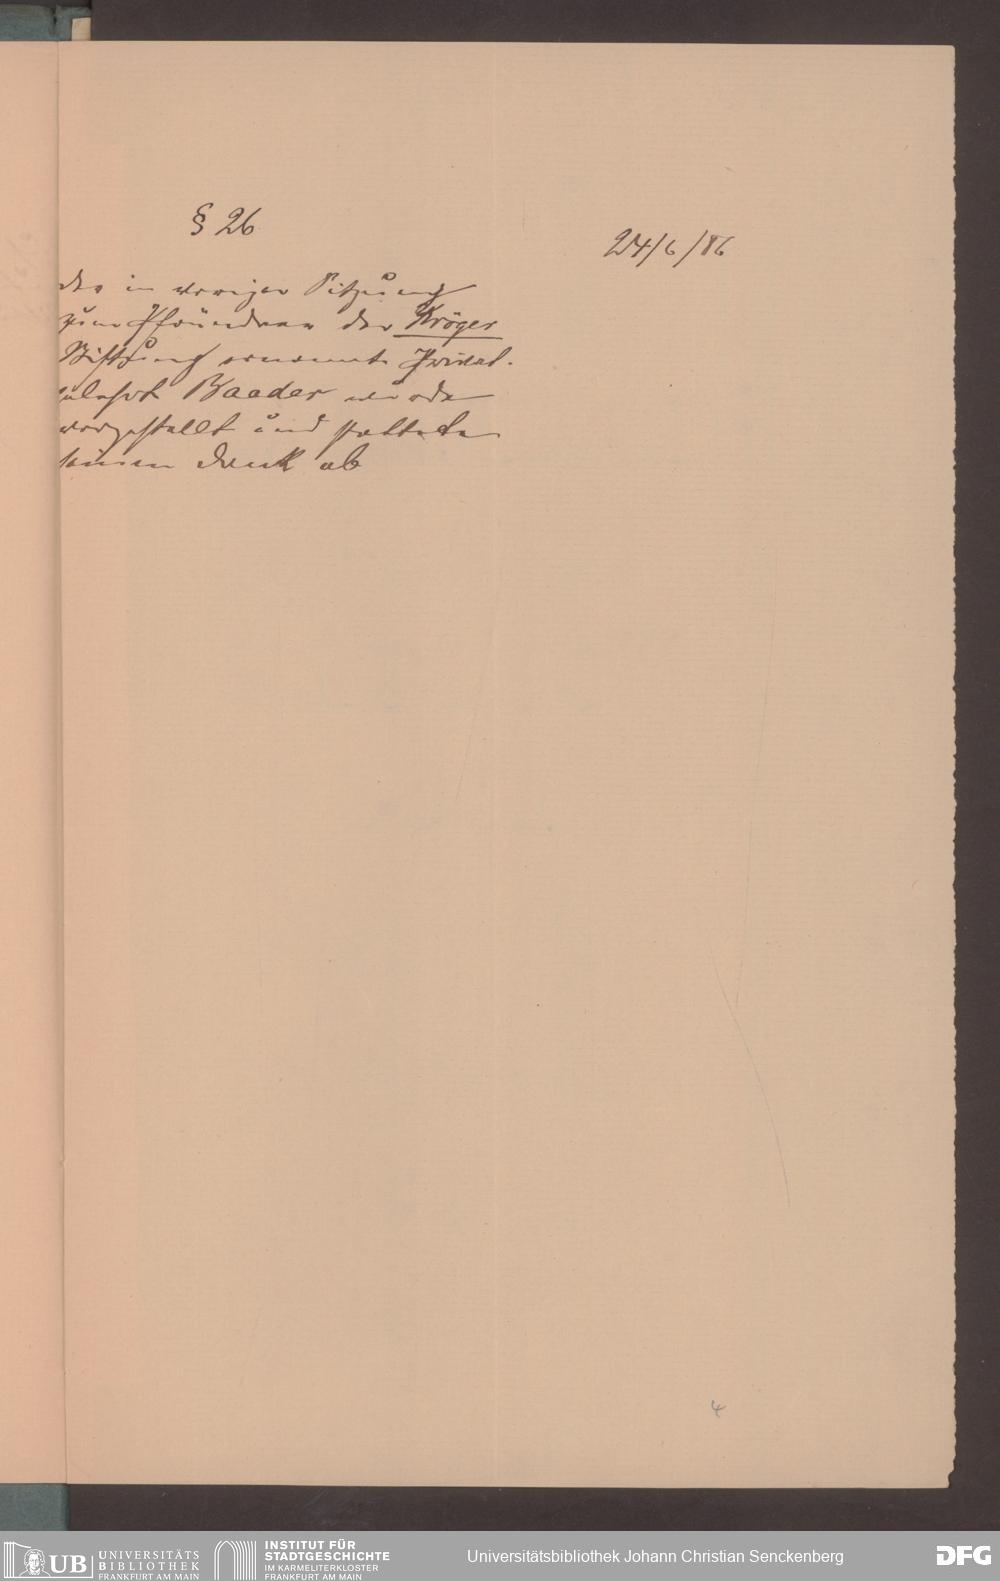 § 26
24/6/86
der in voriger Sitzung
zum Pfründner der Kröger
Stiftung ernannte Privat-
gelehrte Baader wurde
vorgestellt und stattete
seinen Dank ab
4
UB UNIVERSITÄTS
BIBLIOTHEK
FRANKFURT AM MAIN
INSTITUT FÜR
STADTGESCHICHTE
IM KARMELITERKLOSTER
FRANKFURT AM MAIN
Universitätsbibliothek Johann Christian Senckenberg
DFG